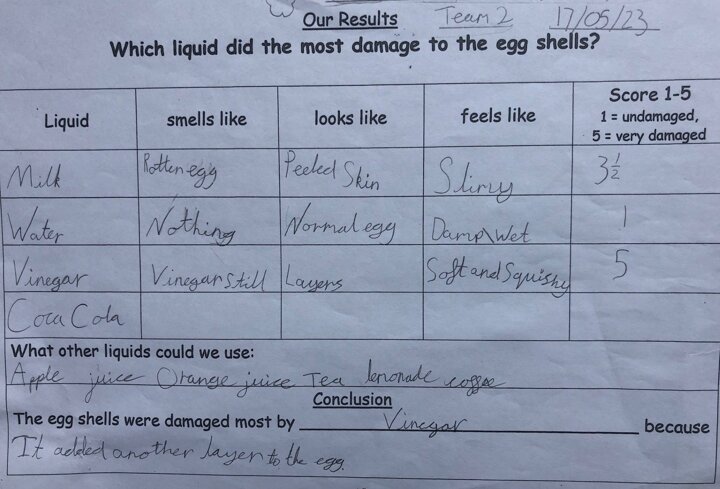 Our Results Team 2 17/05/23
Which liquid did the most damage to the egg shells?
Liquid smells like looks like feels like Score 1-5
1 = undamaged,
5 = very damaged
Milk Rotten egg Peeled Skin Slimy 3½
Water Nothing Normal egg Damp\Wet 1
Vinegar Vinegar still Layers Soft and Squishy 5
Coca Cola
What other liquids could we use:
Apple juice Orange juice Tea lemonade coffee
Conclusion
The egg shells were damaged most by Vinegar because
It added another layer to the egg.